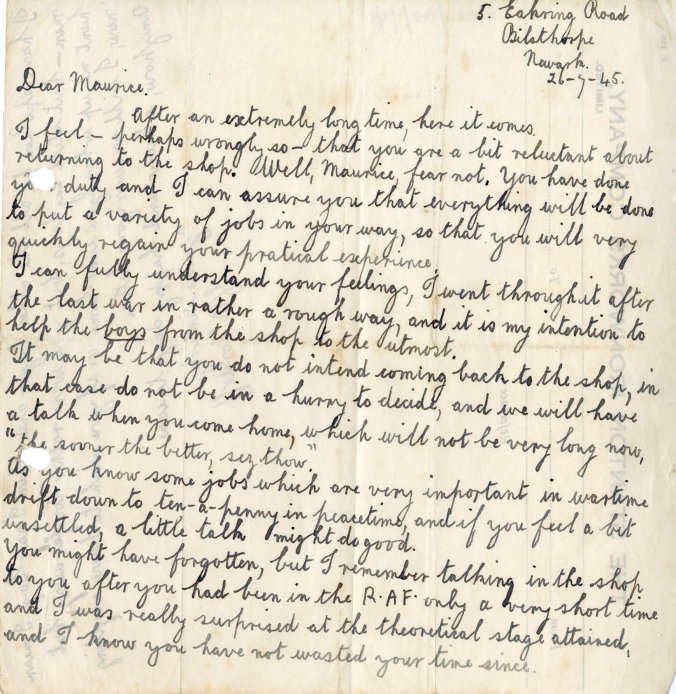 5. Eakring Road
Bilsthorpe
Newark.
26-7-45.
Dear Maurice.
After an extremely long time, here it comes.
I feel – perhaps wrongly so – that you are a bit reluctant about
returning to the shop. Well, Maurice, fear not. You have done
duty and I can assure you that everything will be done
to put a variety of jobs in your way, so that you will very
quickly regain your pratical experience.
I can fully understand your feelings, I went through it after
the last war in rather a rough way, and it is my intention to
help the boys from the shop to the utmost.
It may be that you do not intend coming back to the shop, in
that case do not be in a hurry to decide, and we will have
a talk when you come home, which will not be very long now,
"the sooner the better, sez thow".
As you know some jobs which are very important in wartime
drift down to ten-a-penny in peacetime, and if you feel a bit
unsettled, a little talk might do good.
You might have forgotten, but I remember talking in the shop
to you after you had been in the R.A.F. only a very short time
and I was really surprised at the theoretical stage attained,
and I know you have not wasted your time since.